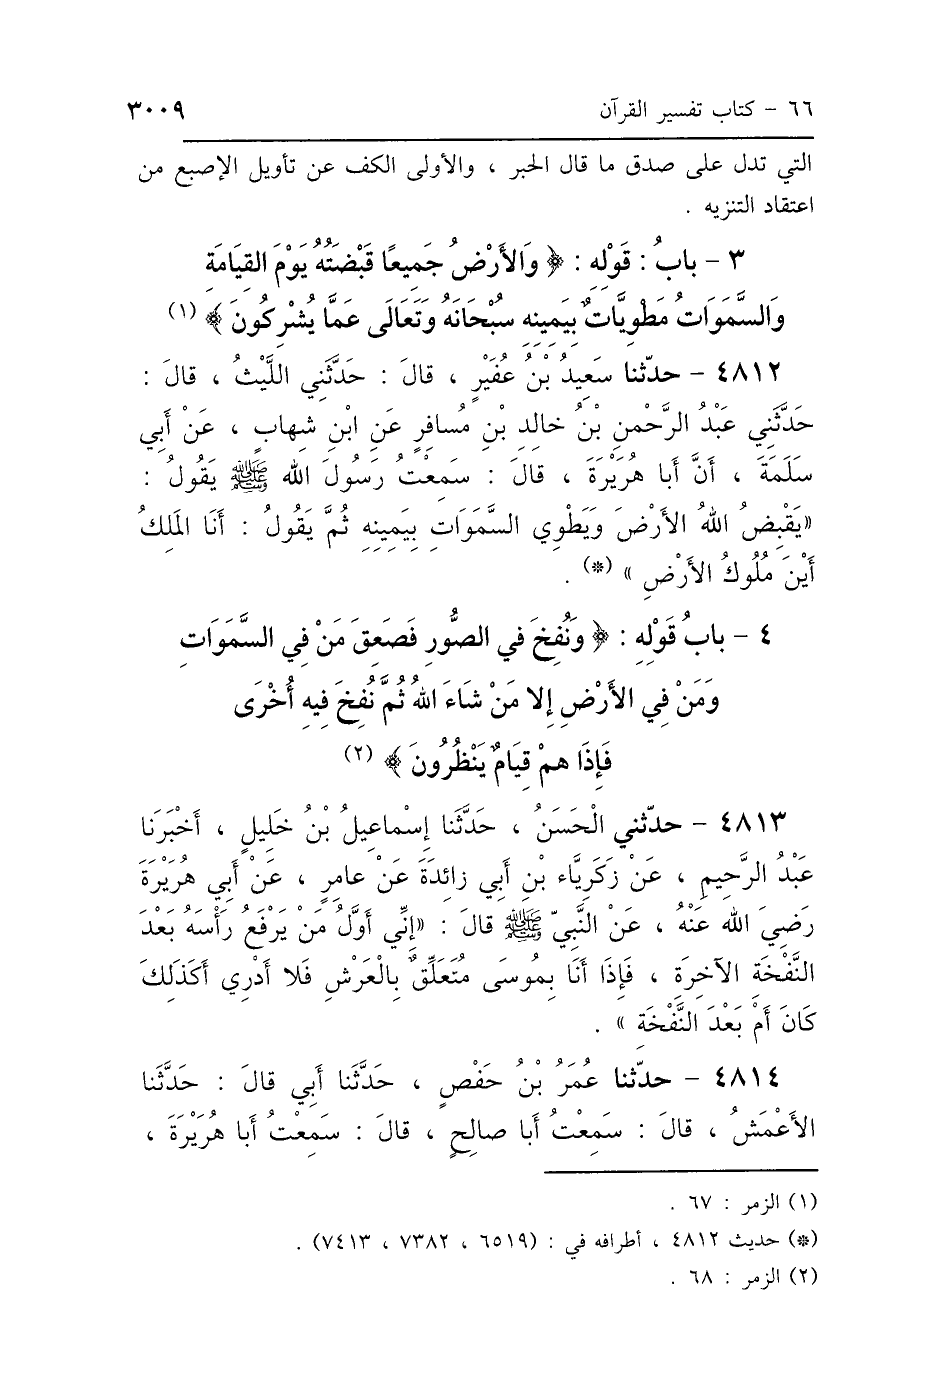 ٦٦ - كتاب تفسير القرآن ٣٠٠٩
التي تدل على صدق ما قال الحبر ، والأولى الكف عن تأويل الإصبع من
اعتقاد التنزيه .
٣ - بابُ : قَوْلِهِ : ﴿ وَالأَرْضُ جَمِيعًا قَبْضَتُهُ يَوْمَ القِيَامَةِ
وَالسَّمَوَاتُ مَطْوِيَّاتٌ بِيَمِينِهِ سُبْحَانَهُ وَتَعَالَى عَمَّا يُشْرِكُونَ ﴾ (١)
٤٨١٢ - حدّثنا سَعِيدُ بْنُ عُفَيْرٍ ، قالَ : حَدَّثَنِي اللَّيْثُ ، قالَ :
حَدَّثَنِي عَبْدُ الرَّحْمنِ بْنُ خالِدِ بْنِ مُسافِرٍ عَنِ ابْنِ شِهابٍ ، عَنْ أَبِي
سَلَمَةَ ، أَنَّ أَبا هُرَيْرَةَ ، قالَ : سَمِعْتُ رَسُولَ الله ﷺ يَقُولُ :
«يَقْبِضُ اللهُ الأَرْضَ وَيَطْوِي السَّمَوَاتِ بِيَمِينِهِ ثُمَّ يَقُولُ : أَنَا المَلِكُ
أَيْنَ مُلُوكُ الأَرْضِ » (*) .
٤ - بابُ قَوْلِهِ : ﴿ وَنُفِخَ فِي الصُّورِ فَصَعِقَ مَنْ فِي السَّمَوَاتِ
وَمَنْ فِي الأَرْضِ إِلا مَنْ شَاءَ اللهُ ثُمَّ نُفِخَ فِيهِ أُخْرَى
فَإِذَا همْ قِيَامٌ يَنْظُرُونَ ﴾ (٢)
٤٨١٣ - حدّثني الْحَسَنُ ، حَدَّثَنَا إِسْماعِيلُ بْنُ خَلِيلٍ ، أَخْبَرَنا
عَبْدُ الرَّحِيمِ ، عَنْ زَكَرِيَّاء بْنِ أَبِي زائِدَةَ عَنْ عامِرٍ ، عَنْ أَبِي هُرَيْرَةَ
رَضِيَ الله عَنْهُ ، عَنْ النَّبِيّ ﷺ قالَ : «إِنِّي أَوَّلُ مَنْ يَرْفَعُ رَأْسَهُ بَعْدَ
النَّفْخَةِ الآخِرَةِ ، فَإِذَا أَنَا بِمُوسَى مُتَعَلِّقٌ بِالْعَرْشِ فَلا أَدْرِي أَكَذَلِكَ
كَانَ أَمْ بَعْدَ النَّفْخَةِ » .
٤٨١٤ - حدّثنا عُمَرُ بْنُ حَفْصٍ ، حَدَّثَنَا أَبِي قالَ : حَدَّثَنا
الأَعْمَشُ ، قالَ : سَمِعْتُ أَبا صالِحٍ ، قالَ : سَمِعتُ أَبا هُرَيْرَةَ ،
(١) الزمر : ٦٧ .
(*) حديث ٤٨١٢ ، أطرافه في : (٦٥١٩ ، ٧٣٨٢ ، ٧٤١٣) .
(٢) الزمر : ٦٨ .